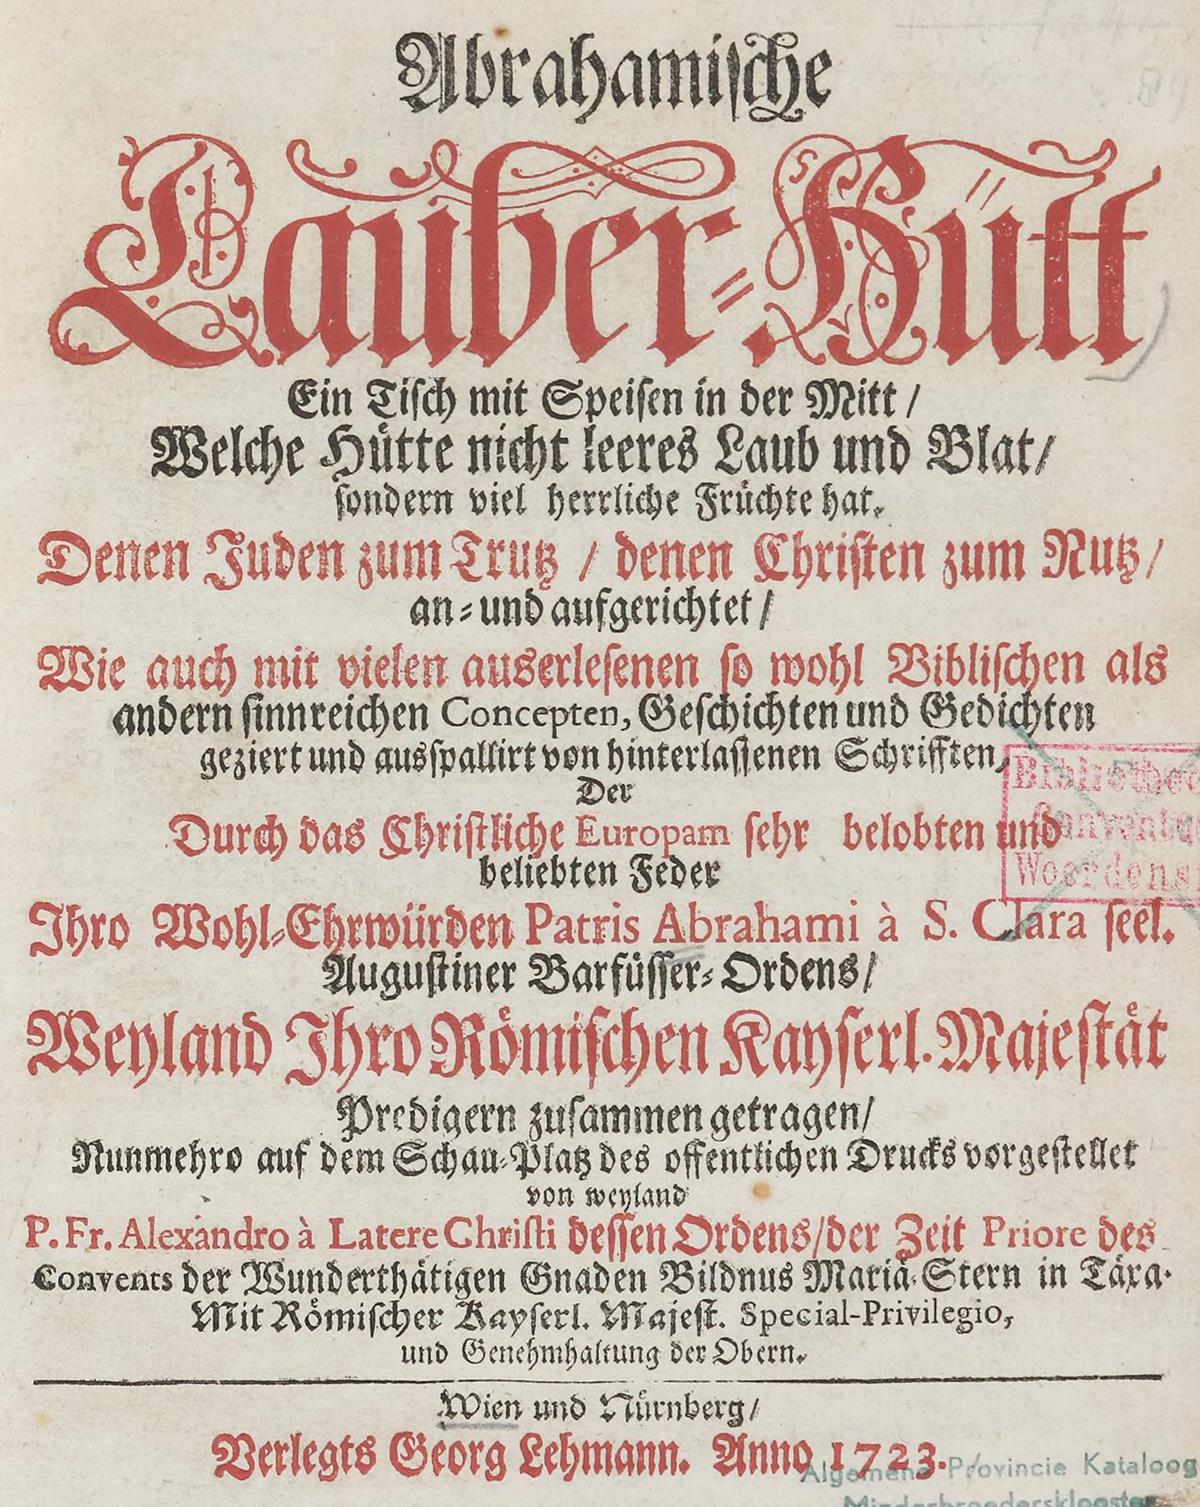 Abrahamische
Lauber-Hütt
Ein Tisch mit Speisen in der Mitt/
Welche Hütte nicht leeres Laub und Blat/
sondern viel herrliche Früchte hat.
Denen Juden zum Trutz / denen Christen zum Nutz/
an- und aufgerichtet/
Wie auch mit vielen auserlesenen so wohl Biblischen als
andern sinnreichen Concepten, Geschichten und Gedichten
geziert und ausspallirt von hinterlassenen Schrifften,
Der
Durch das Christliche Europam sehr belobten und
beliebten Feder
Ihro Wohl-Ehrwürden Patris Abrahami à S. Clara seel.
Augustiner Barfüsser-Ordens/
Weyland Ihro Römischen Kayserl. Majestät
Predigern zusammen getragen/
Nunmehro auf dem Schau-Platz des offentlichen Drucks vorgestellet
von weyland
P. Fr. Alexandro à Latere Christi dessen Ordens/der Zeit Priore des
Convents der Wunderthätigen Gnaden Bildnus Mariä-Stern in Täxa.
Mit Römischer Kayserl. Majest. Special-Privilegio,
und Genehmhaltung der Obern.
Wien und Nürnberg/
Verlegts Georg Lehmann. Anno 1723.
Algemene Provincie Kataloog
Minderbroedersklooster